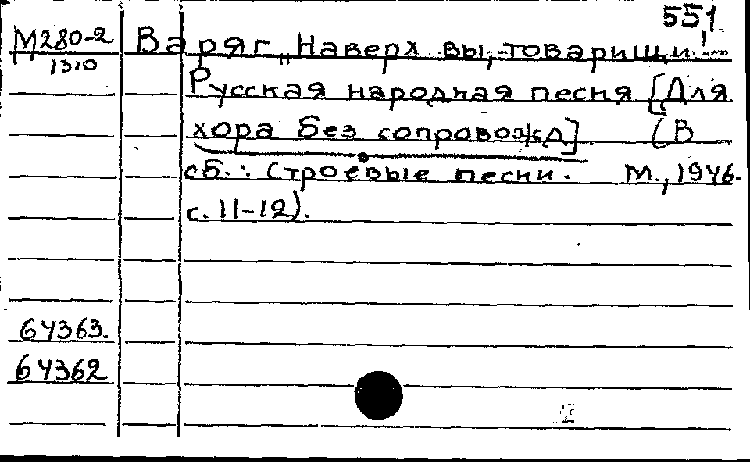 551
М280-2 Варяг „Наверх вы, товарищи...
1310
Русская народная песня [Для
хора без сопровожд] (В
сб.: Строевые песни. М., 1946.
с. 11-12).
64363.
64362